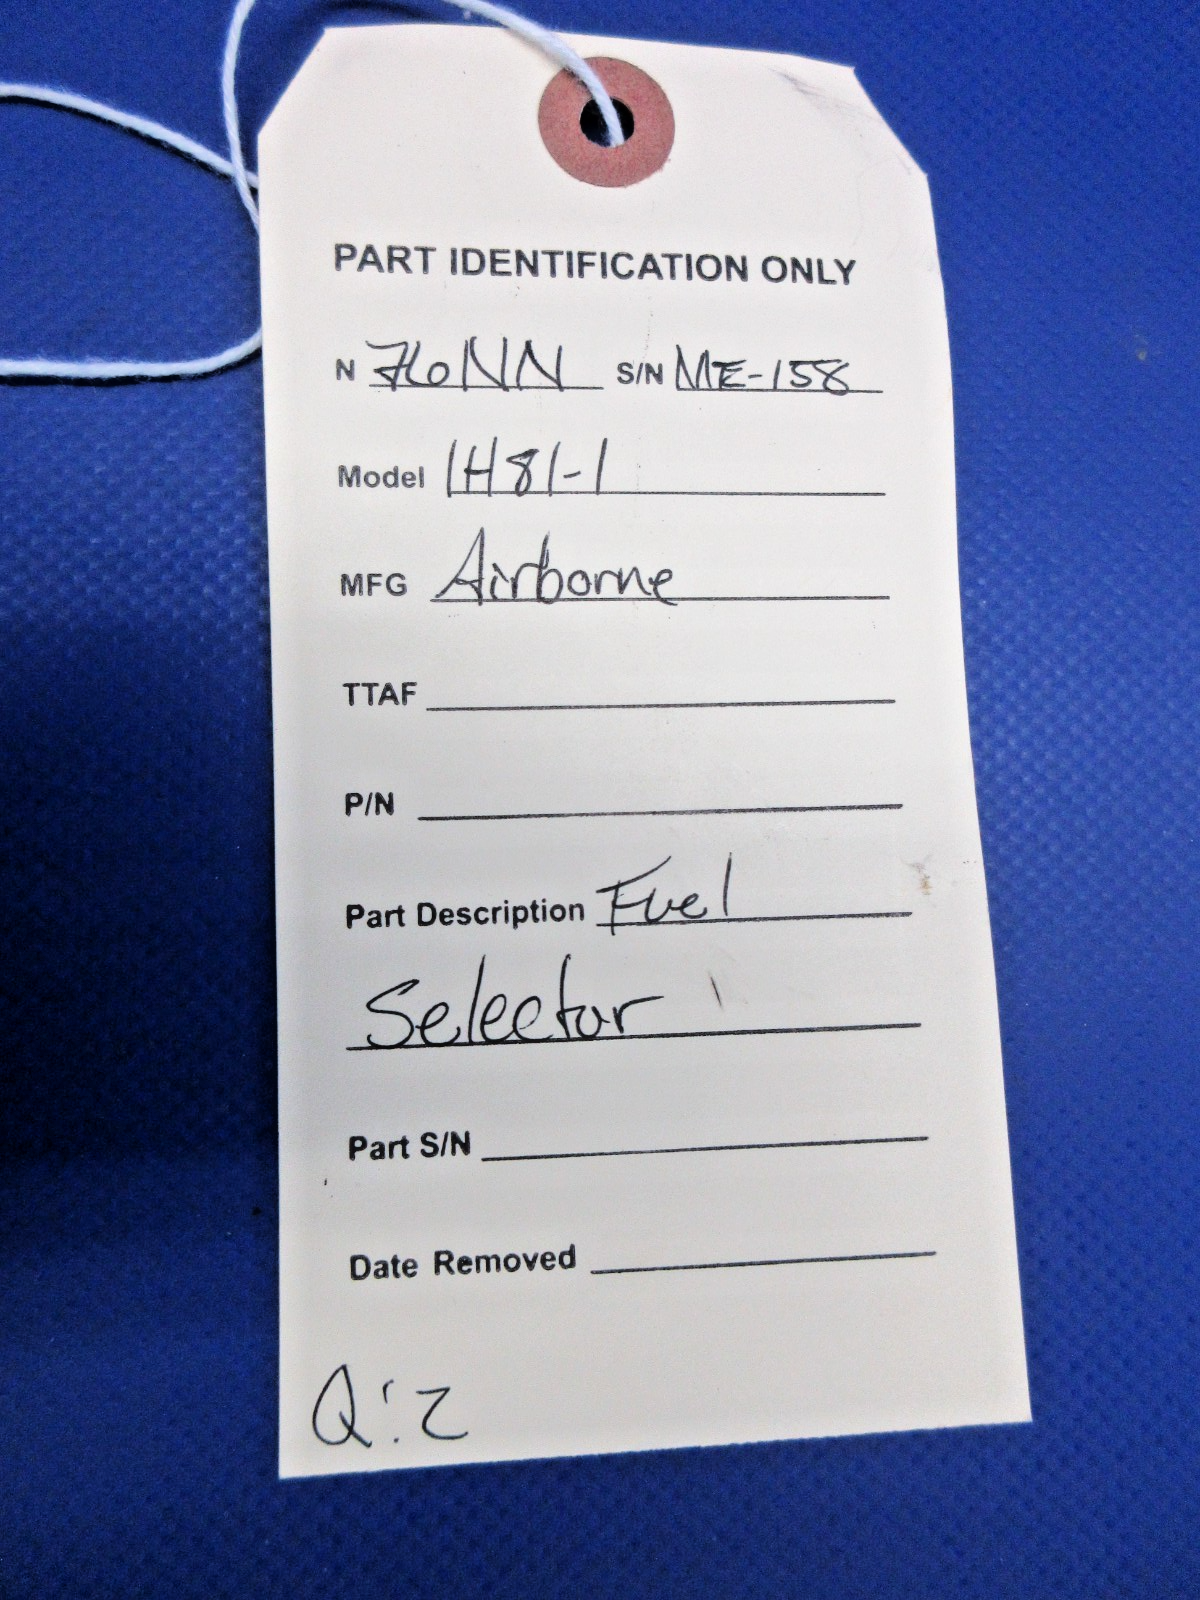 PART IDENTIFICATION ONLY
N 76NN S/N ME-158
Model 1H81-1
MFG Airborne
TTAF
P/N
Part Description Fuel
Selector
Part S/N
Date Removed
Q:2